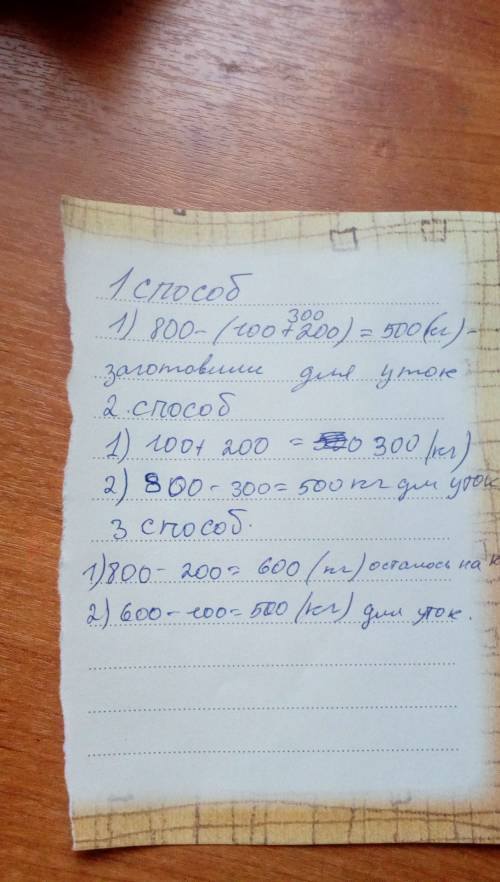 1 способ
300
1) 800 - (100 + 200) = 500 (кг) -
заготовили для уток
2. способ
1) 100 + 200 = 300 (кг)
2) 800 - 300 = 500 кг для уток
3 способ.
1) 800 - 200 = 600 (кг) осталось на
2) 600 - 100 = 500 (кг) для уток.